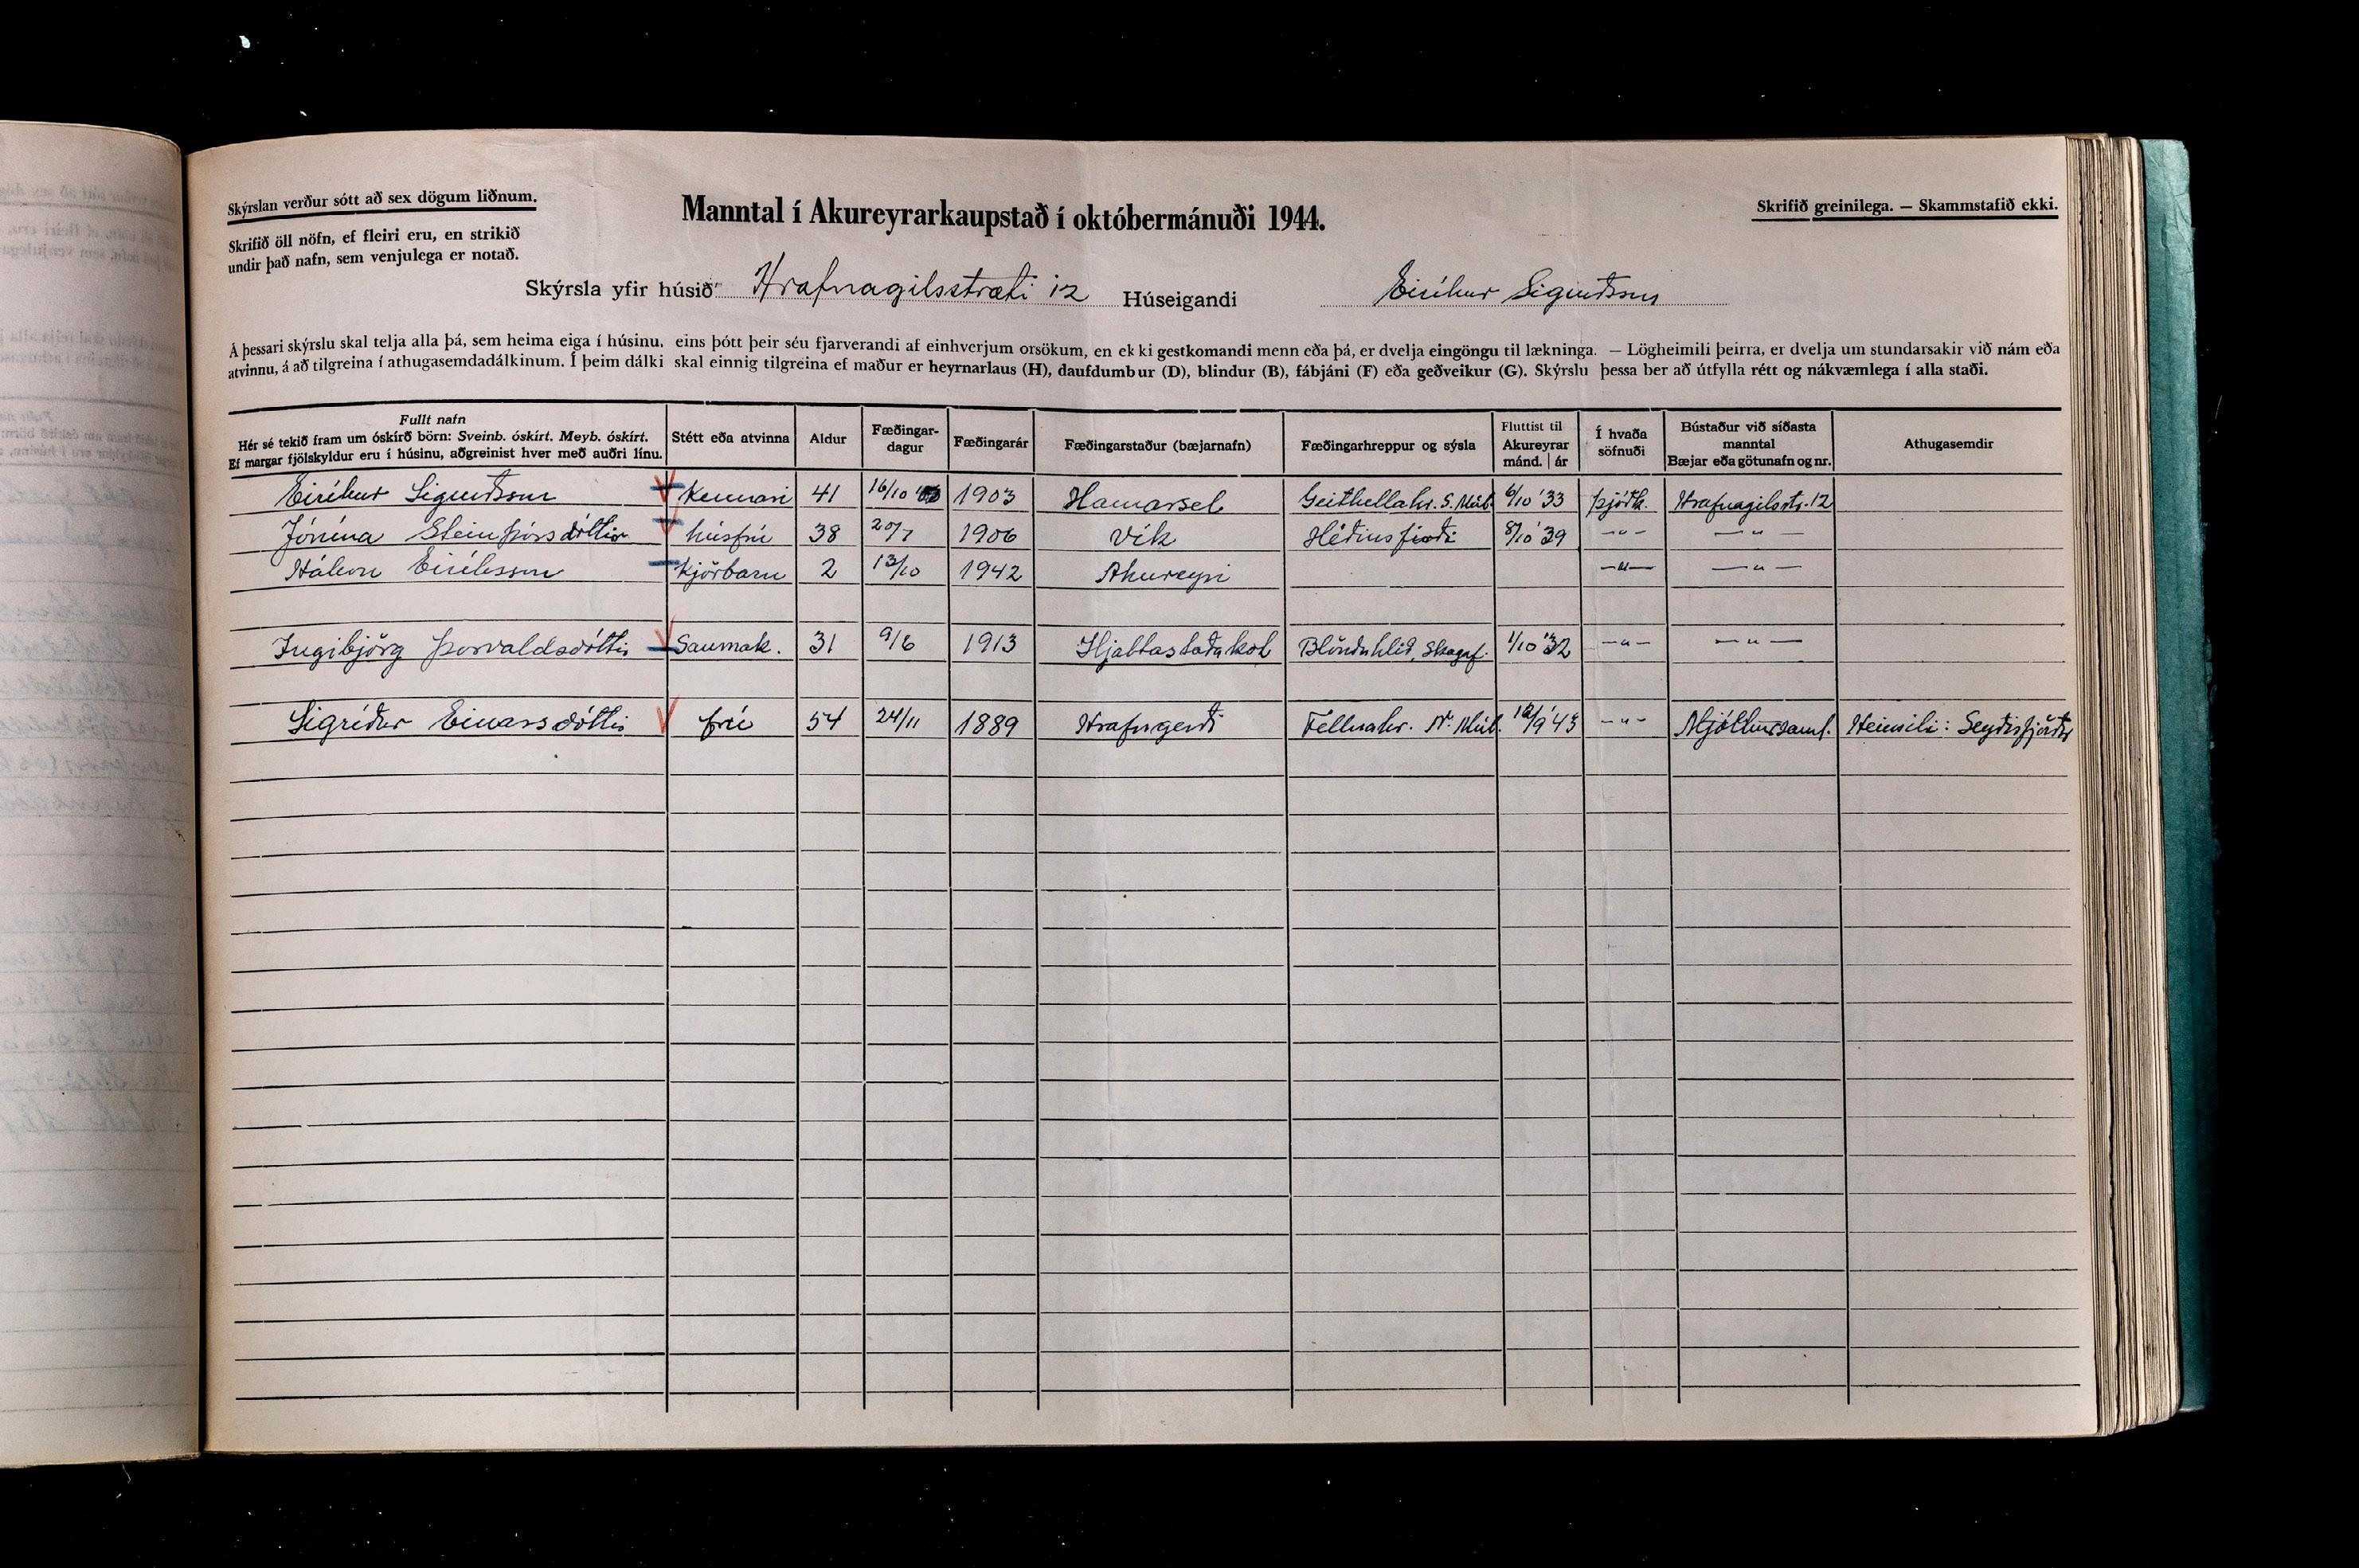 Skýrslan verður sótt að sex dögum liðnum.
Skrifið öll nöfn, ef fleiri eru, en strikið
undir það nafn, sem venjulega er notað.
Manntal í Akureyrarkaupstað í októbermánuði 1944.
Skrifið greinilega. — Skammstafið ekki.
Skýrsla yfir húsið Hrafnagilsstræti 12 Húseigandi Eiríkur Sigurðsson
Á þessari skýrslu skal telja alla þá, sem heima eiga í húsinu, eins þótt þeir séu fjarverandi af einhverjum orsökum, en ekki gestkomandi menn eða þá, er dvelja eingöngu til lækninga. — Lögheimili þeirra, er dvelja um stundarsakir við nám eða
atvinnu, á að tilgreina í athugasemdadálkinum. Í þeim dálki skal einnig tilgreina ef maður er heyrnarlaus (H), daufdumbur (D), blindur (B), fábjáni (F) eða geðveikur (G). Skýrslu þessa ber að útfylla rétt og nákvæmlega í alla staði.
Fullt nafn
Hér sé tekið fram um óskírð börn: Sveinb. óskírt. Meyb. óskírt.
Ef margar fjölskyldur eru í húsinu, aðgreinist hver með auðri línu.
Stétt eða atvinna
Aldur
Fæðingar-
dagur
Fæðingarár
Fæðingarstaður (bæjarnafn)
Fæðingarhreppur og sýsla
Fluttist til
Akureyrar
mánd. | ár
Í hvaða
söfnuði
Bústaður við síðasta
manntal
Bæjar eða götunafn og nr.
Athugasemdir
Eiríkur Sigurðsson kennari 41 16/10 1903 Hamarsel Geithellahr. S. Múl. 6/10 '33 Þjóðk. Hrafnagilsstr. 12
Jónína Steinþórsdóttir húsfrú 38 20/7 1906 Vík Héðinsfirði 8/10 '39 —"— —"—
Hákon Eiríksson kjörbarn 2 13/10 1942 Akureyri —"— —"—
Ingibjörg Þorvaldsdóttir Saumak. 31 9/6 1913 Hjaltastaðakot Blönduhlíð, Skagaf. 1/10 '32 —"— —"—
Sigríður Einarsdóttir frú 54 24/11 1889 Hrafngerði Fellnahr. N. Múl. '43 —"— Mjólkursaml. Heimili: Seyðisfjörður